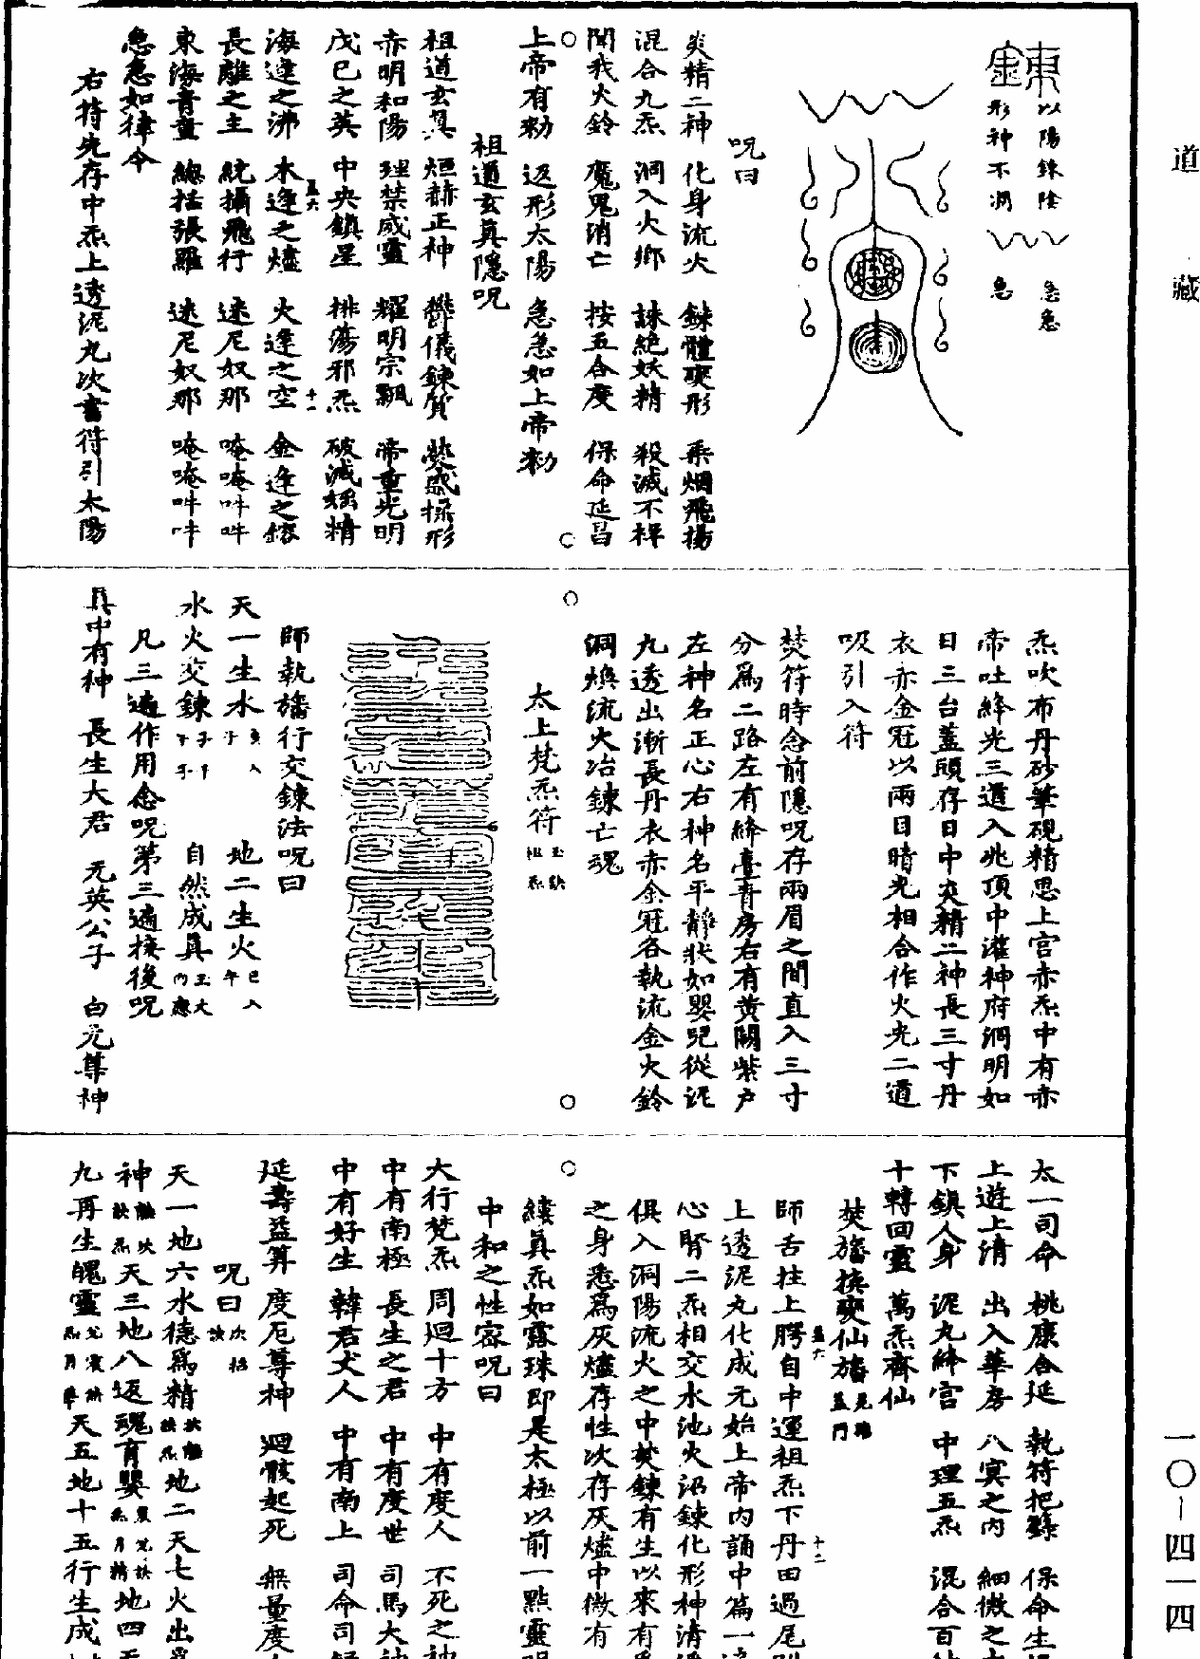 道藏
鍊 以陽鍊陰 形神不凋 急急急
呪曰
炎精二神 化身流火 鍊體更形 乘烟飛揚
混合九炁 洞入火鄉 誅絕妖精 殺滅不祥
聞我火鈴 魔鬼消亡 按五合度 保命延昌
上帝有勑 返形太陽 急急如上帝勑
祖道玄真隱呪
祖道玄真 烜赫正神 鬱儀鍊質 熒惑操形
赤明和陽 理禁威靈 耀明宗飄 帝重光明
戊巳之英 中央鎮星 排蕩邪炁 破滅妖精
海逢之沸 木逢之燼 火逢之空 金逢之鎔
長離之主 統攝飛行 迷尼奴那 唵唵吽吽
東海青童 總括張羅 迷尼奴那 唵唵吽吽
急急如律令
右持先存中炁上透泥丸次書符引太陽
炁吹布丹砂筆硯精思上宮赤炁中有赤
帝吐絳光三道入兆頂中灌神府洞明如
日三台蓋頭存日中炎精二神長三寸丹
衣赤金冠以兩目睛光相合作火光二道
吸引入符
焚符時念前隱呪存兩眉之間直入三寸
分爲二路左有絳臺青房右有黃闕紫户
左神名正心右神名平靜狀如嬰兒從泥
九透出漸長丹衣赤金冠各執流金火鈴
洞煥流火冶鍊亡魂
太上梵炁符
師執旛行交鍊法呪曰
天一生水 地二生火
水火交鍊 自然成真
凡三遍作用念呪第三遍接後呪
真中有神 長生大君 无英公子 白元尊神
太一司命 桃康合延 執符把籙 保命生
上遊上清 出入華房 八冥之内 細微之
下鎮人身 泥丸絳宮 中理五炁 混合百
十轉回靈 萬炁齊仙
焚旛換更仙旛
師舌拄上腭自中運祖炁下丹田過尾
上透泥丸化成元始上帝内誦中篇一
心腎二炁相交水池火沼鍊化形神清
俱入洞陽流火之中焚鍊有生以來有
之身悉爲灰燼存性次存灰燼中微有
縷真炁如露珠即是太極以前一點靈
中和之性密呪曰
大行梵炁 周迴十方 中有度人 不死之神
中有南極 長生之君 中有度世 司馬大神
中有好生 韓君丈人 中有南上 司命司
延壽益算 度厄尊神 迴骸起死 無量度
呪曰
天一地六水德爲精 地二天七火出
神 天三地八返魂育嬰 地四天
九再生魄靈 天五地十五行生成
一〇—四一四